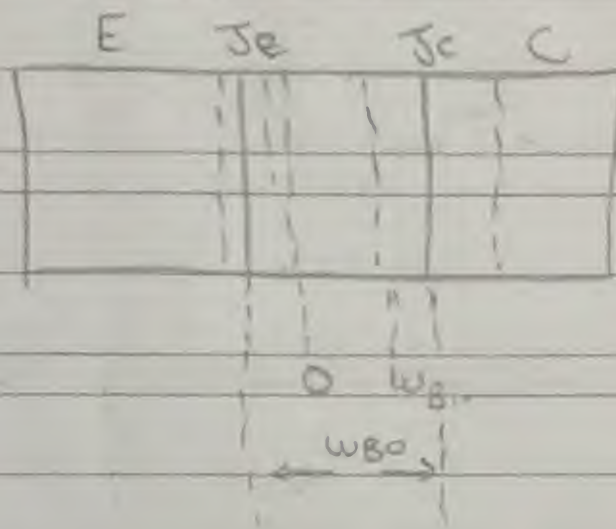 E Je Jc C
O WB
WBO